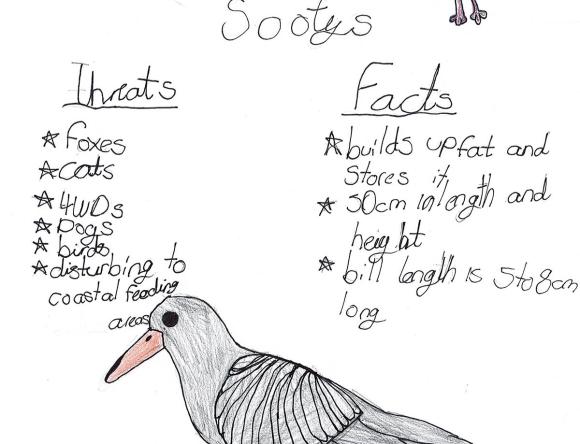 Sootys
Threats
☆ foxes
☆ cats
☆ 4WDs
☆ Dogs
☆ birds
☆ disturbing to
coastal feeding
areas
Facts
☆ builds up fat and
stores it
☆ 50cm in length and
height
☆ bill length is 5 to 8cm
long